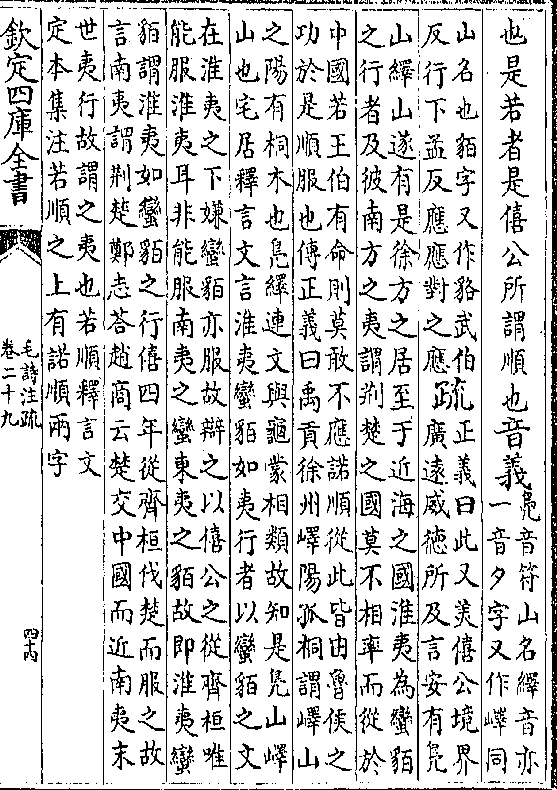 也是若者是僖公所謂順也音義
鳬音符山名繹音亦
一音夕字又作嶧同
山名也貊字又作貉武伯
反行下孟反應應對之應
疏
正義曰此又美僖公境界
廣遠威徳所及言安有鳬
山繹山遂有是徐方之居至于近海之國淮夷為蠻貊
之行者及彼南方之夷謂荆楚之國莫不相率而從於
中國若王伯有命則莫敢不應諾順從此皆由魯侯之
功於是順服也傳正義曰禹貢徐州嶧陽孤桐謂嶧山
之陽有桐木也鳬繹連文與龜蒙相類故知是鳬山嶧
山也宅居釋言文言淮夷蠻貊如夷行者以蠻貊之文
在淮夷之下嫌蠻貊亦服故辯之以僖公之從齊桓唯
能服淮夷耳非能服南夷之蠻東夷之貊故即淮夷蠻
貊謂淮夷如蠻貊之行僖四年從齊桓伐楚而服之故
言南夷謂荆楚鄭志答趙商云楚交中國而近南夷末
世夷行故謂之夷也若順釋言文
定本集注若順之上有諾順兩字
欽定四庫全書
毛詩注疏
卷二十九